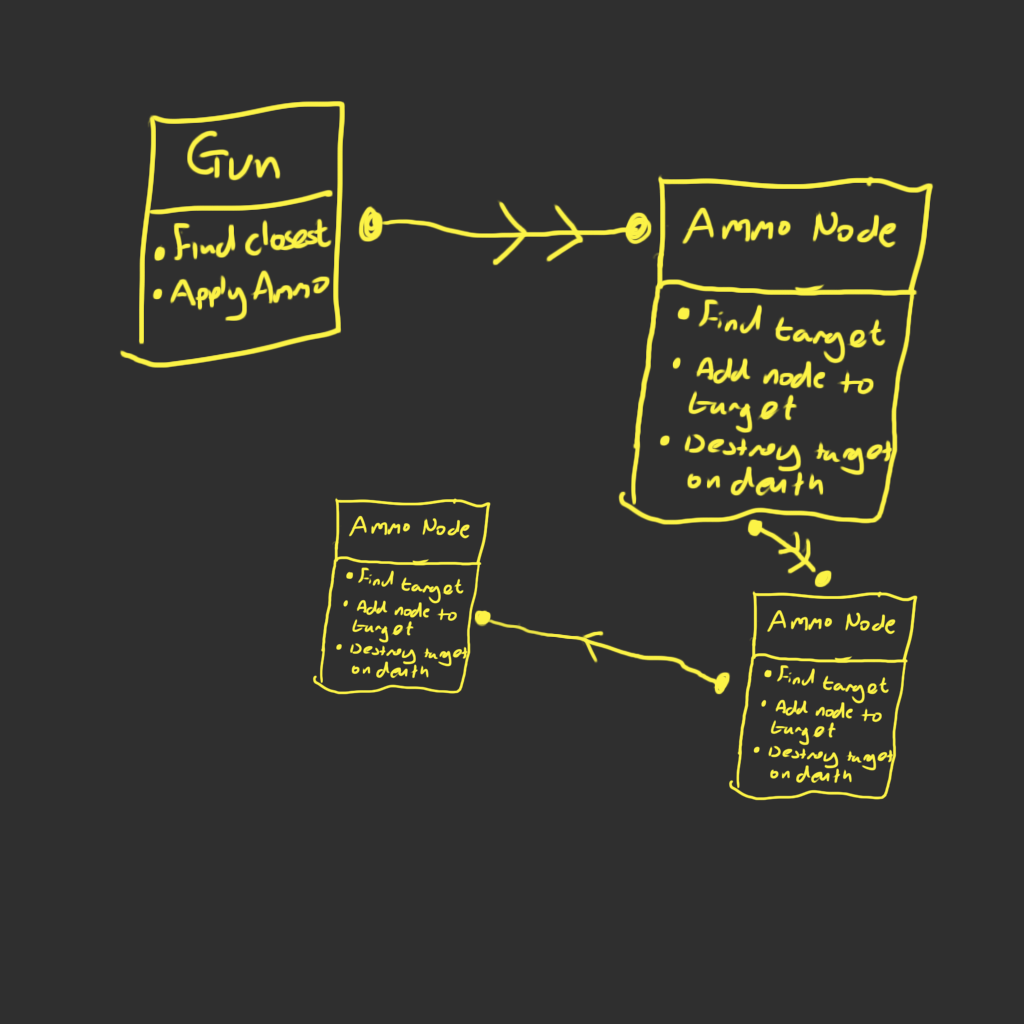 Gun
• Find closest
• Apply Ammo
Ammo Node
• Find target
• Add node to
target
• Destroy target
on death
Ammo Node
• Find target
• Add node to
target
• Destroy target
on death
Ammo Node
• Find target
• Add node to
target
• Destroy target
on death